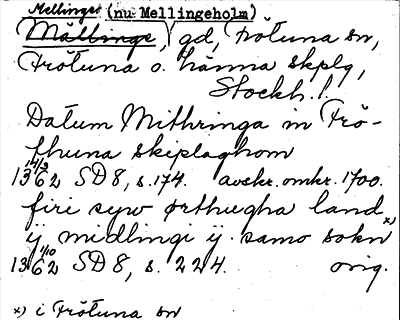 Mellinge (nu Mellingeholm)
Mällinge, gd, Frötuna sn,
Frötuna o. Länna skplg,
Stockh. l.
Datum Mithringa in Frö-
thuna skiplaghom
14/3 1362 SD 8, s. 174. avskr. omkr. 1700.
firi syw ørthugha land
ij midlingi ij samo sokn x)
1/10 1362 SD 8, s. 224. orig.
x) i Frötuna sn